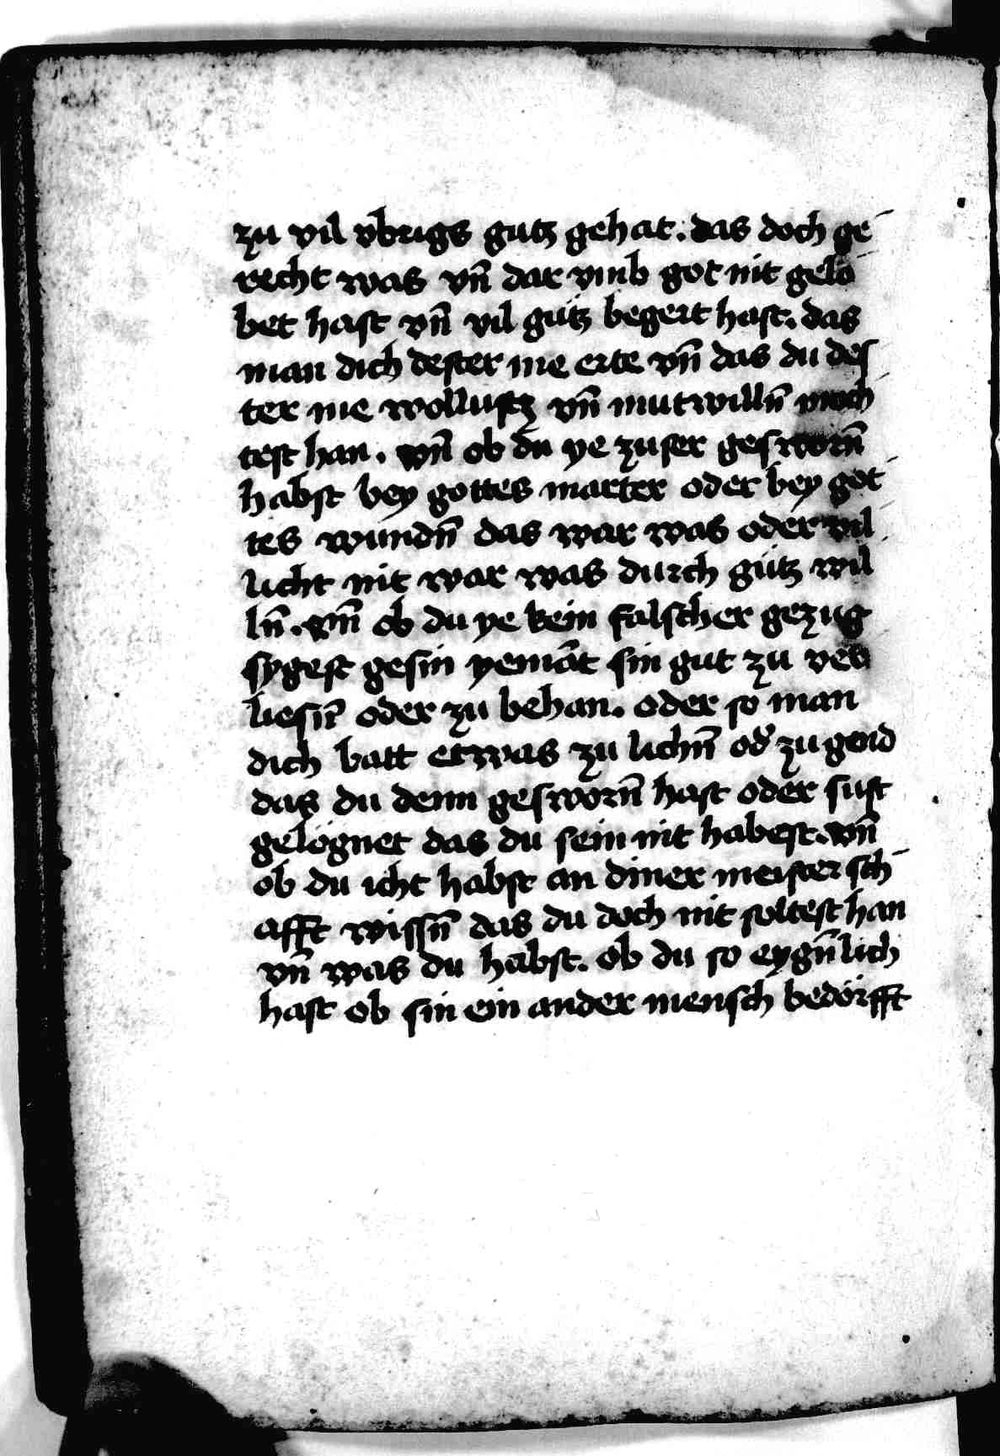 zu vil vbrigs gutz gehat. das doch ge
recht was vn̄ dar vmb got nit gelo
bet hast vn̄ vil gutz begert hast. das
man dich dester me erte vn̄ das du des
ter me wollustz vn̄ mutwilln̄ moch
test han. vn̄ ob du ye zuser gesworn̄
habst bey gottes marter oder bey got
tes wundn̄ das war was oder vil
licht nit war was durch gutz wil
ln̄. vn̄ ob du ye kein falscher gezug
sygest gesin yemāt sin gut zu ver
liesn̄ oder zu behan. oder so man
dich batt etwas zu lichn̄ od̛ zu gend
das du denn gesworn̄ hast oder sust
gelögnet das du sein nit habest. vn̄
ob du icht habst an diner meistersch
afft wissn̄ das du doch nit soltest han
vn̄ was du habst. ob du so eygn̄lich
hast ob sin ein ander mensch bedörfft